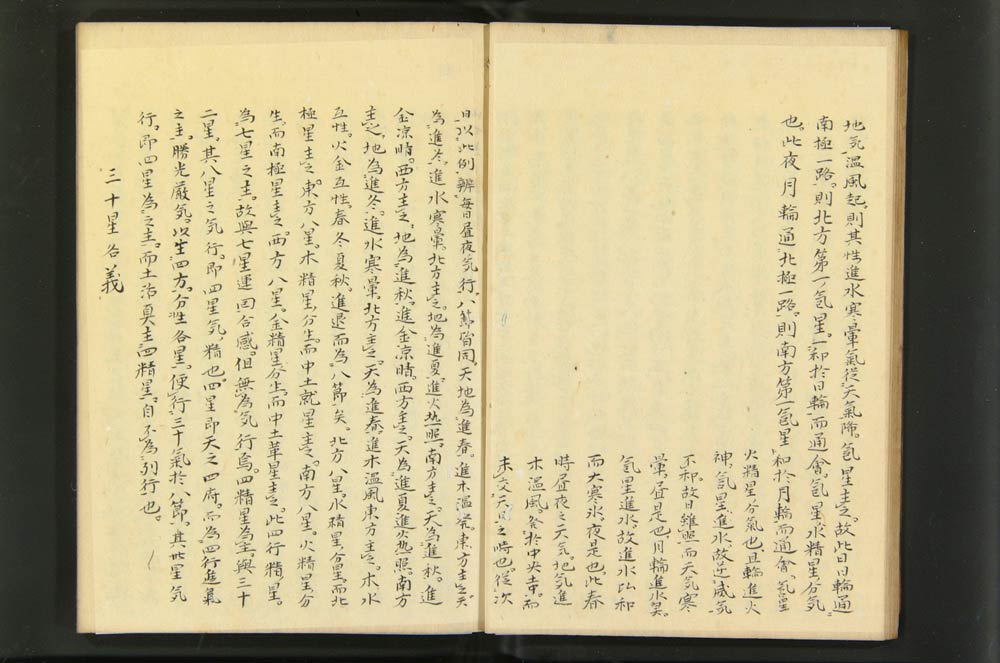 地気温風起則其性進水寒暈氣從天氣降氤星主之故此日日輪通
南極一路則北方第一氤星一和於日輪而通會氤星水精星分気
也此夜月輪通北極一路則南方第一氤星和於月輪而通會氤星
火精星分氣也且輪進火
神氤星進水故逆感気
不和故日雖照而天気寒
暈昼是也月輪進水是
氤星進水故進水以和
而大寒氷夜是也此春
時昼夜之天気地気進
木温風冬於中央土而
未交天日之時也從次
日以此例辨毎日昼夜気行八節皆同天地為進春進木温暖東方主之天
為進冬進水寒暈北方主之地為進夏進火热照南方主之天為進秋進
金凉時西方主之地為進秋進金凉晴西方主之天為進夏進火热照南方
主之地為進冬進水寒暈北方主之天為進春進木温風東方主之木水
互性火金互性春冬夏秋進退而為八節矣北方八星水精星分星而北
極星主之東方八星木精星分生而中土就星主之南方八星火精星分
生而南極星主之西方八星金精星分生而中土革星主之此四行精星
為七星之主故與七星運回合感但無為気行焉四精星為主與三十
二星其八星之気行即四星気精也四星即天之四府而為四行進氣
之主勝光厳気以生四方分性各星便行三十氣於八節其卅星気
行即四星為之主而土治真主四精星自不為列行也
三十星各義